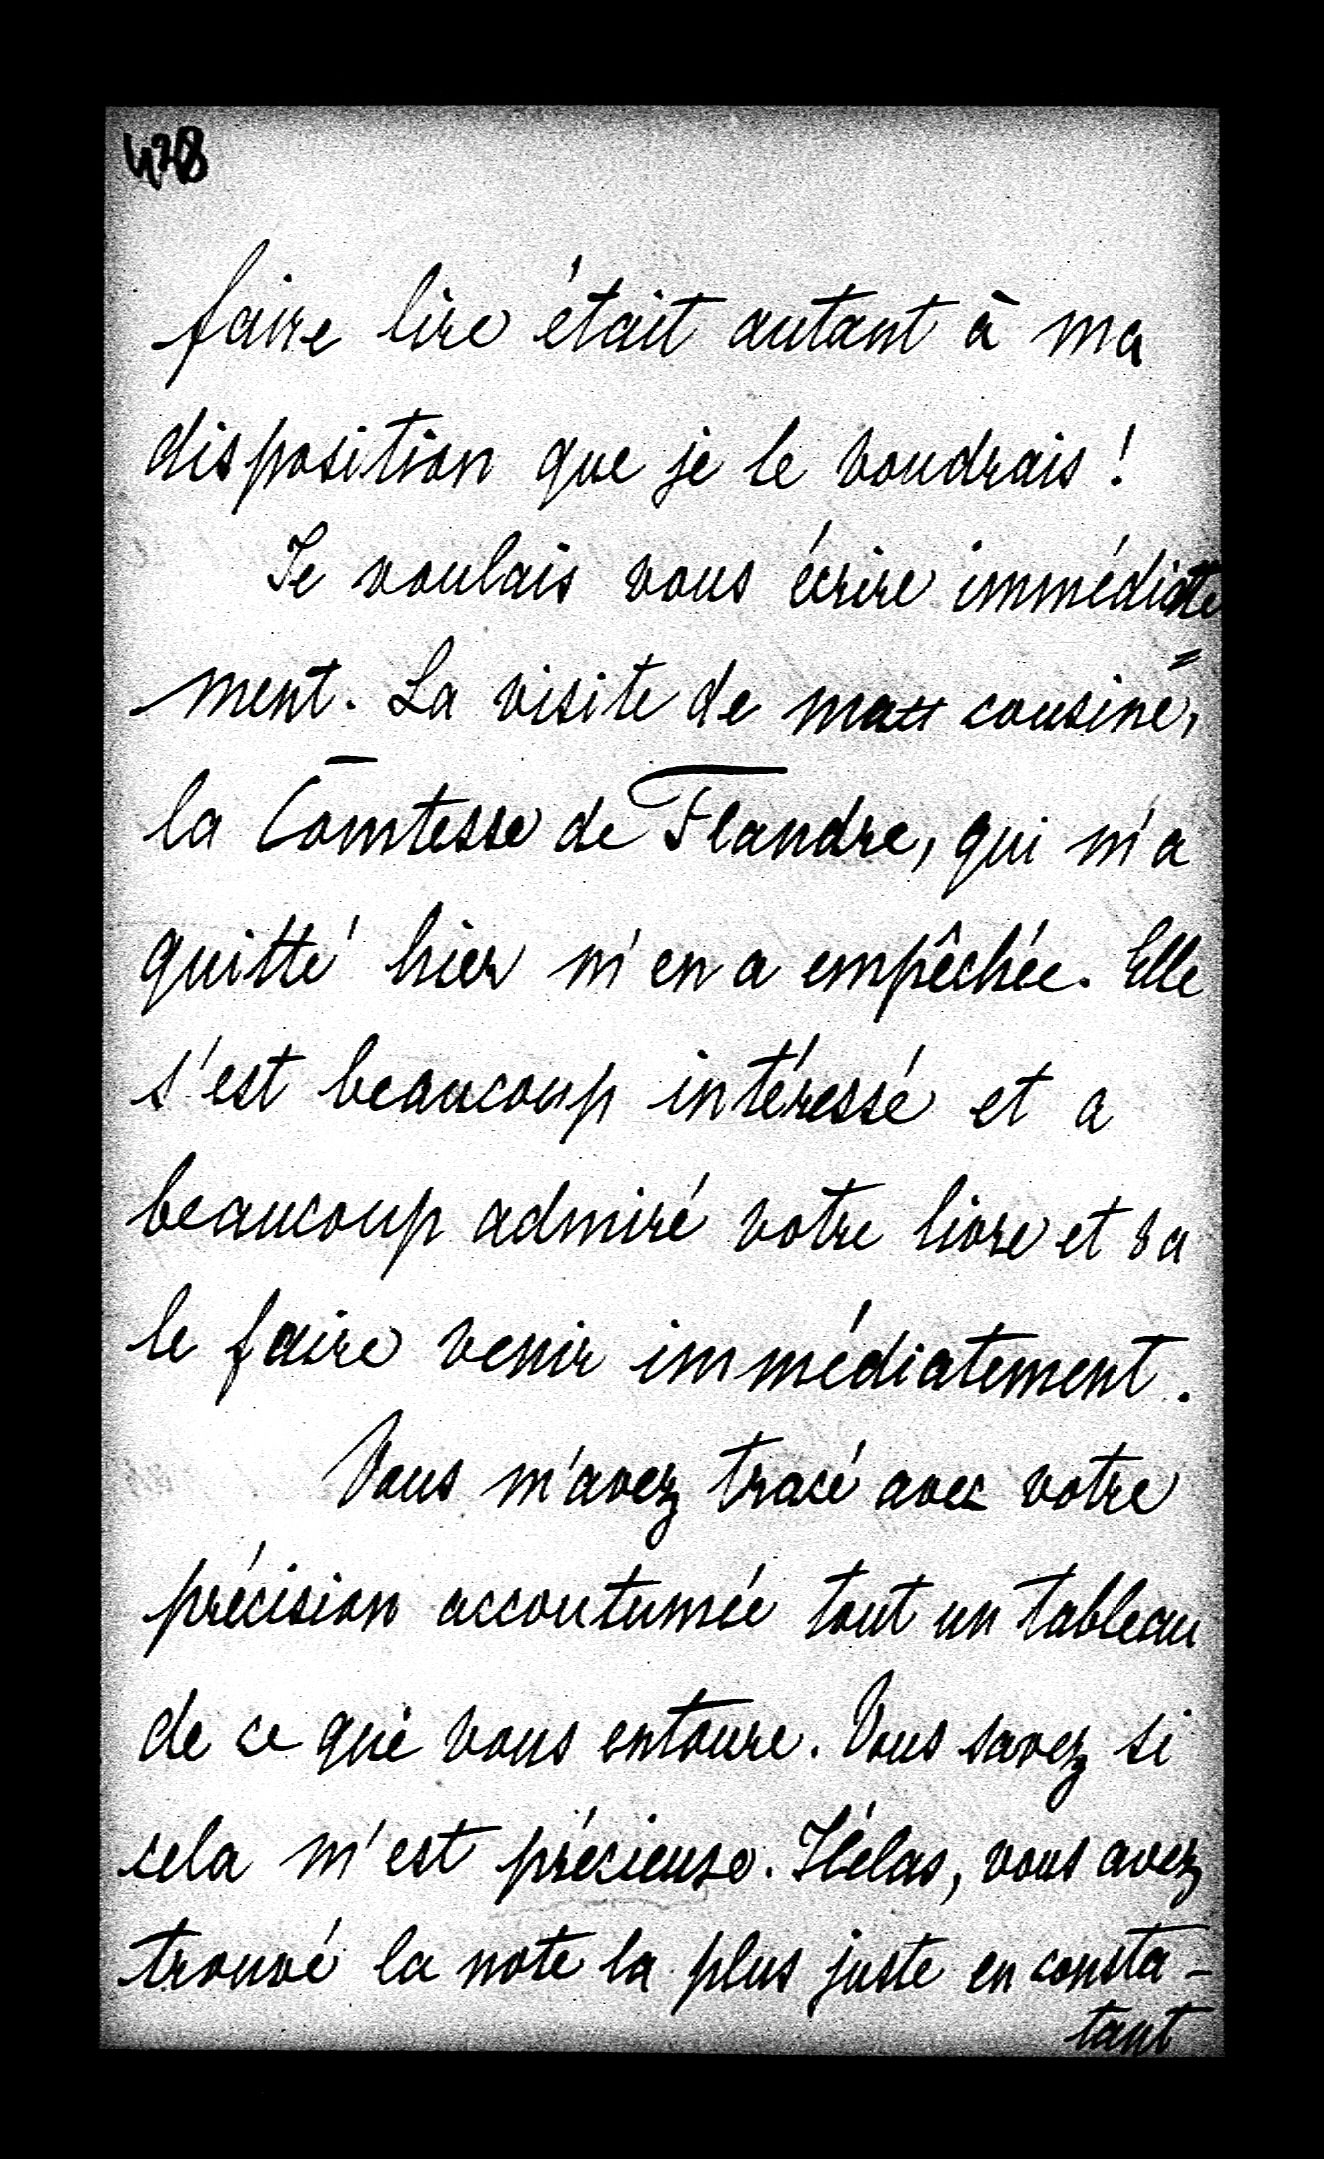 428
faire lire était autant à ma
disposition que je le voudrais!
Je voulais vous écrire immédiate
ment. La visite de ma cousine,
la Comtesse de Flandre, qui m'a
quitté hier m'en a empêchée. Elle
s'est beaucoup intéressé et a
beaucoup admiré votre livre et va
le faire venir immédiatement.
Vous m'avez tracé avec votre
précision accoutumée tout un tableau
de ce qui vous entoure. Vous savez si
cela m'est précieuse. Hélas, vous avez
trouvé la note la plus juste en consta-
tant